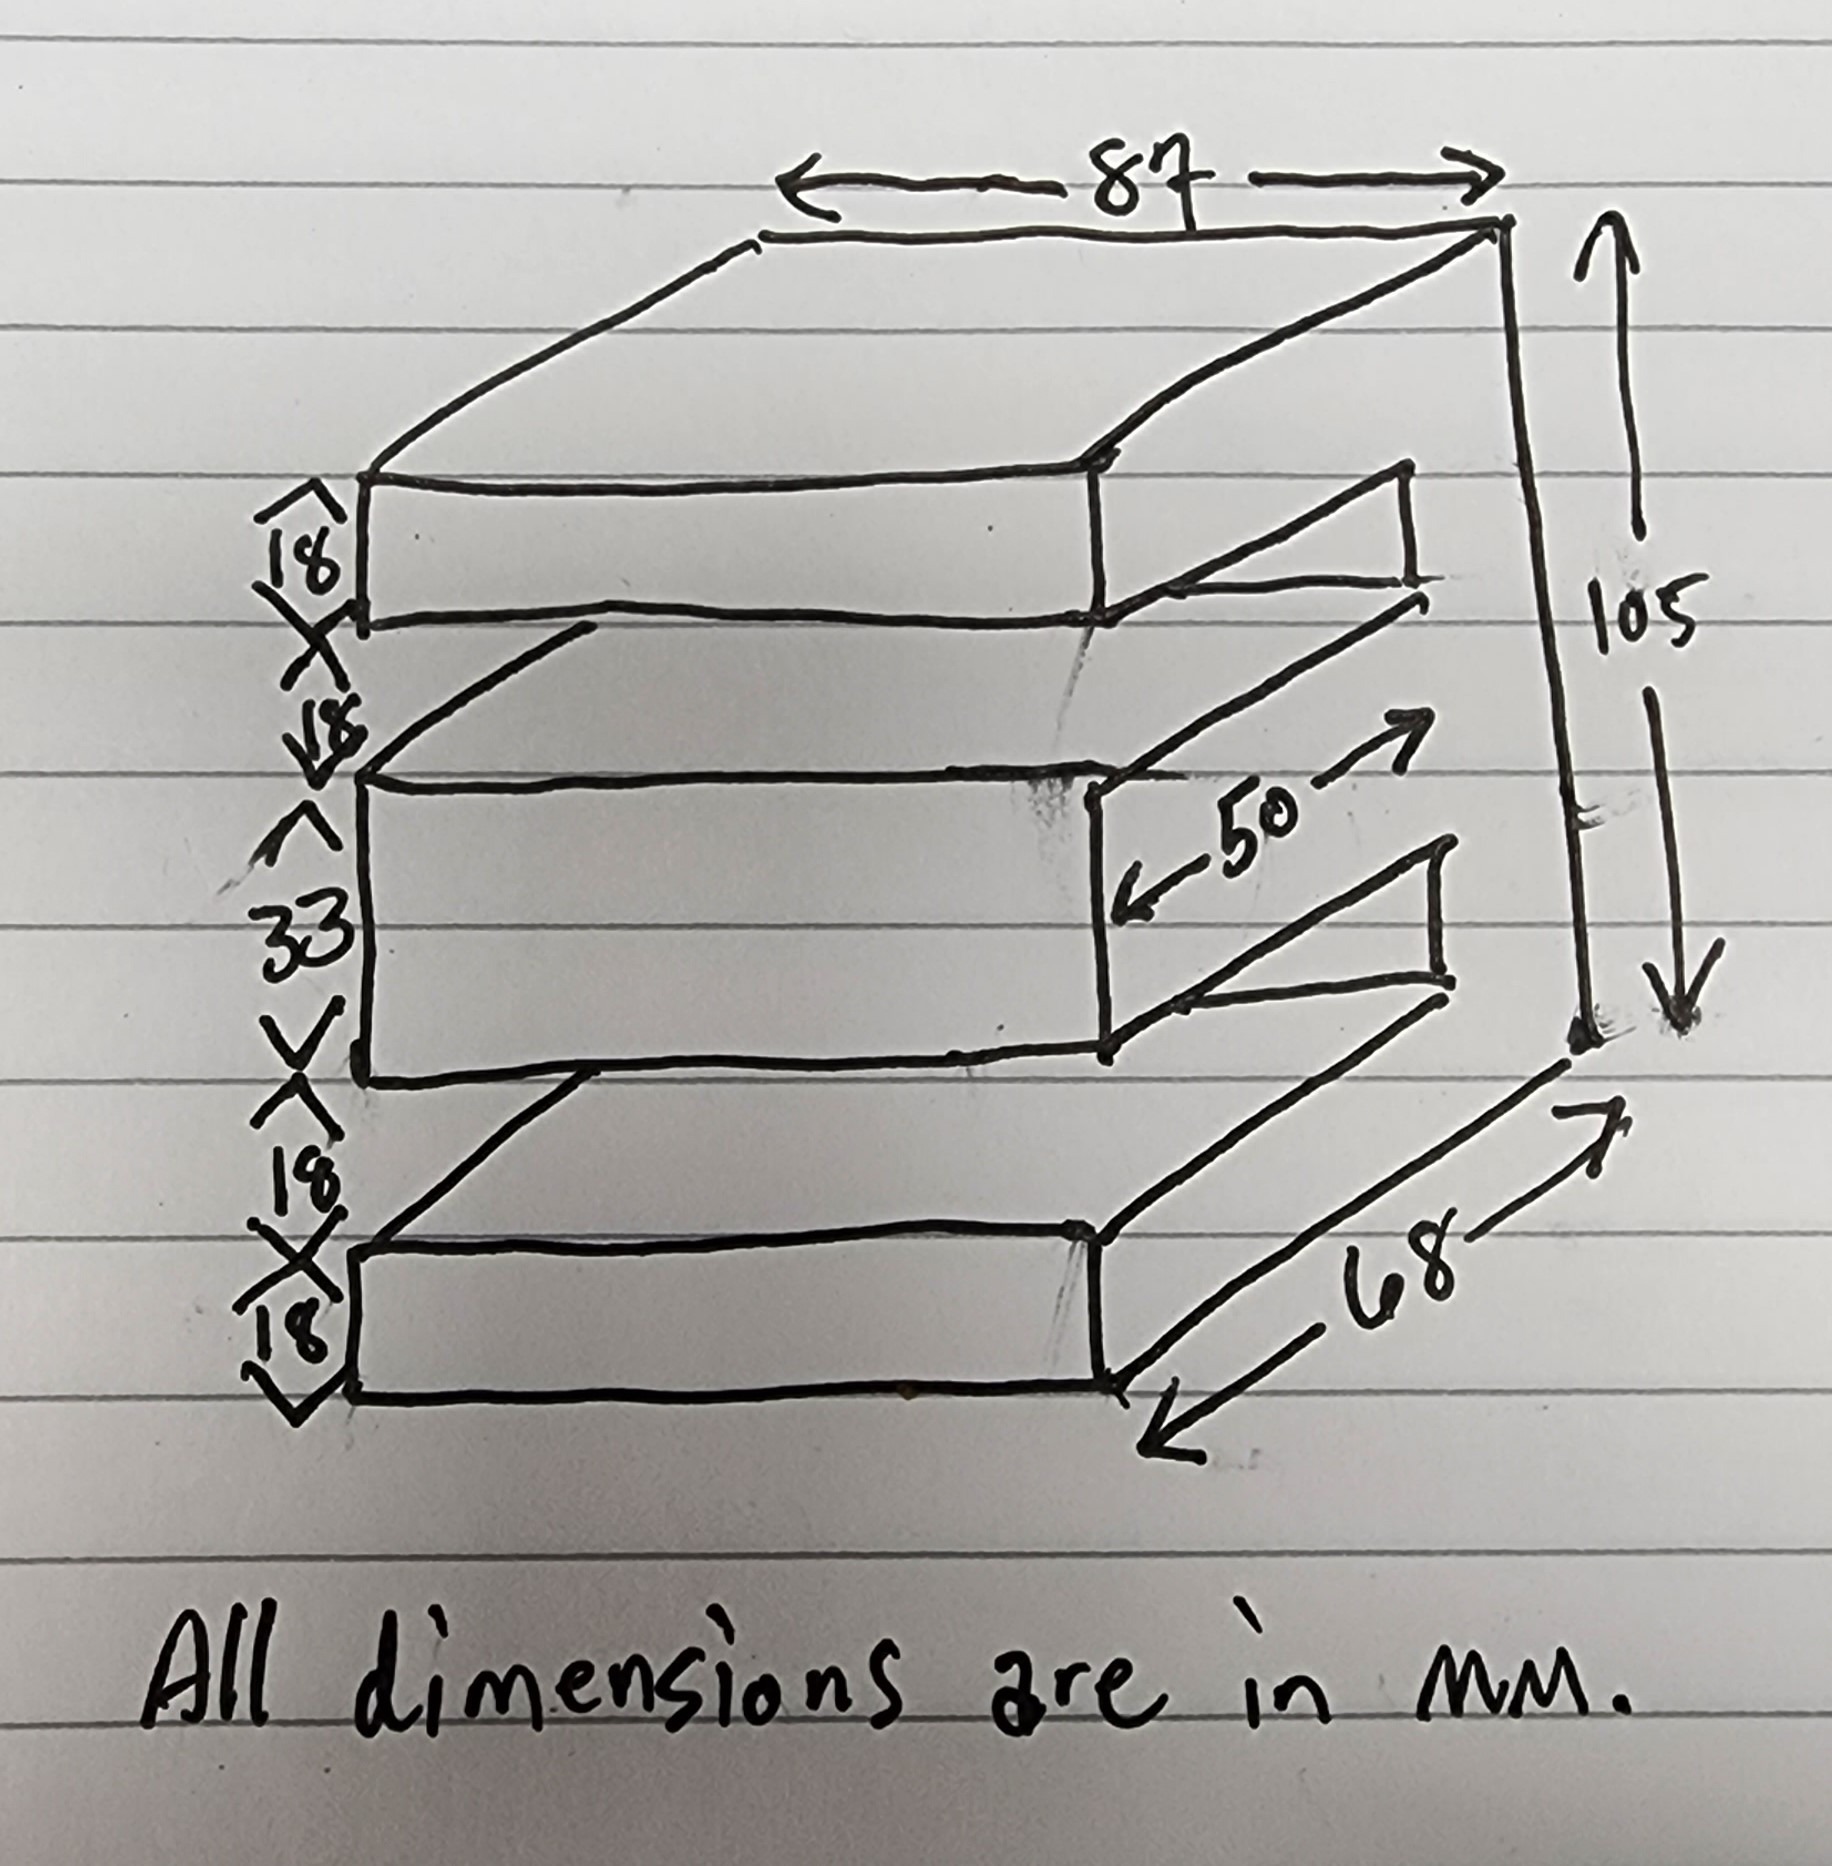 87
18
105
18
50
33
18
68
18
All dimensions are in mm.